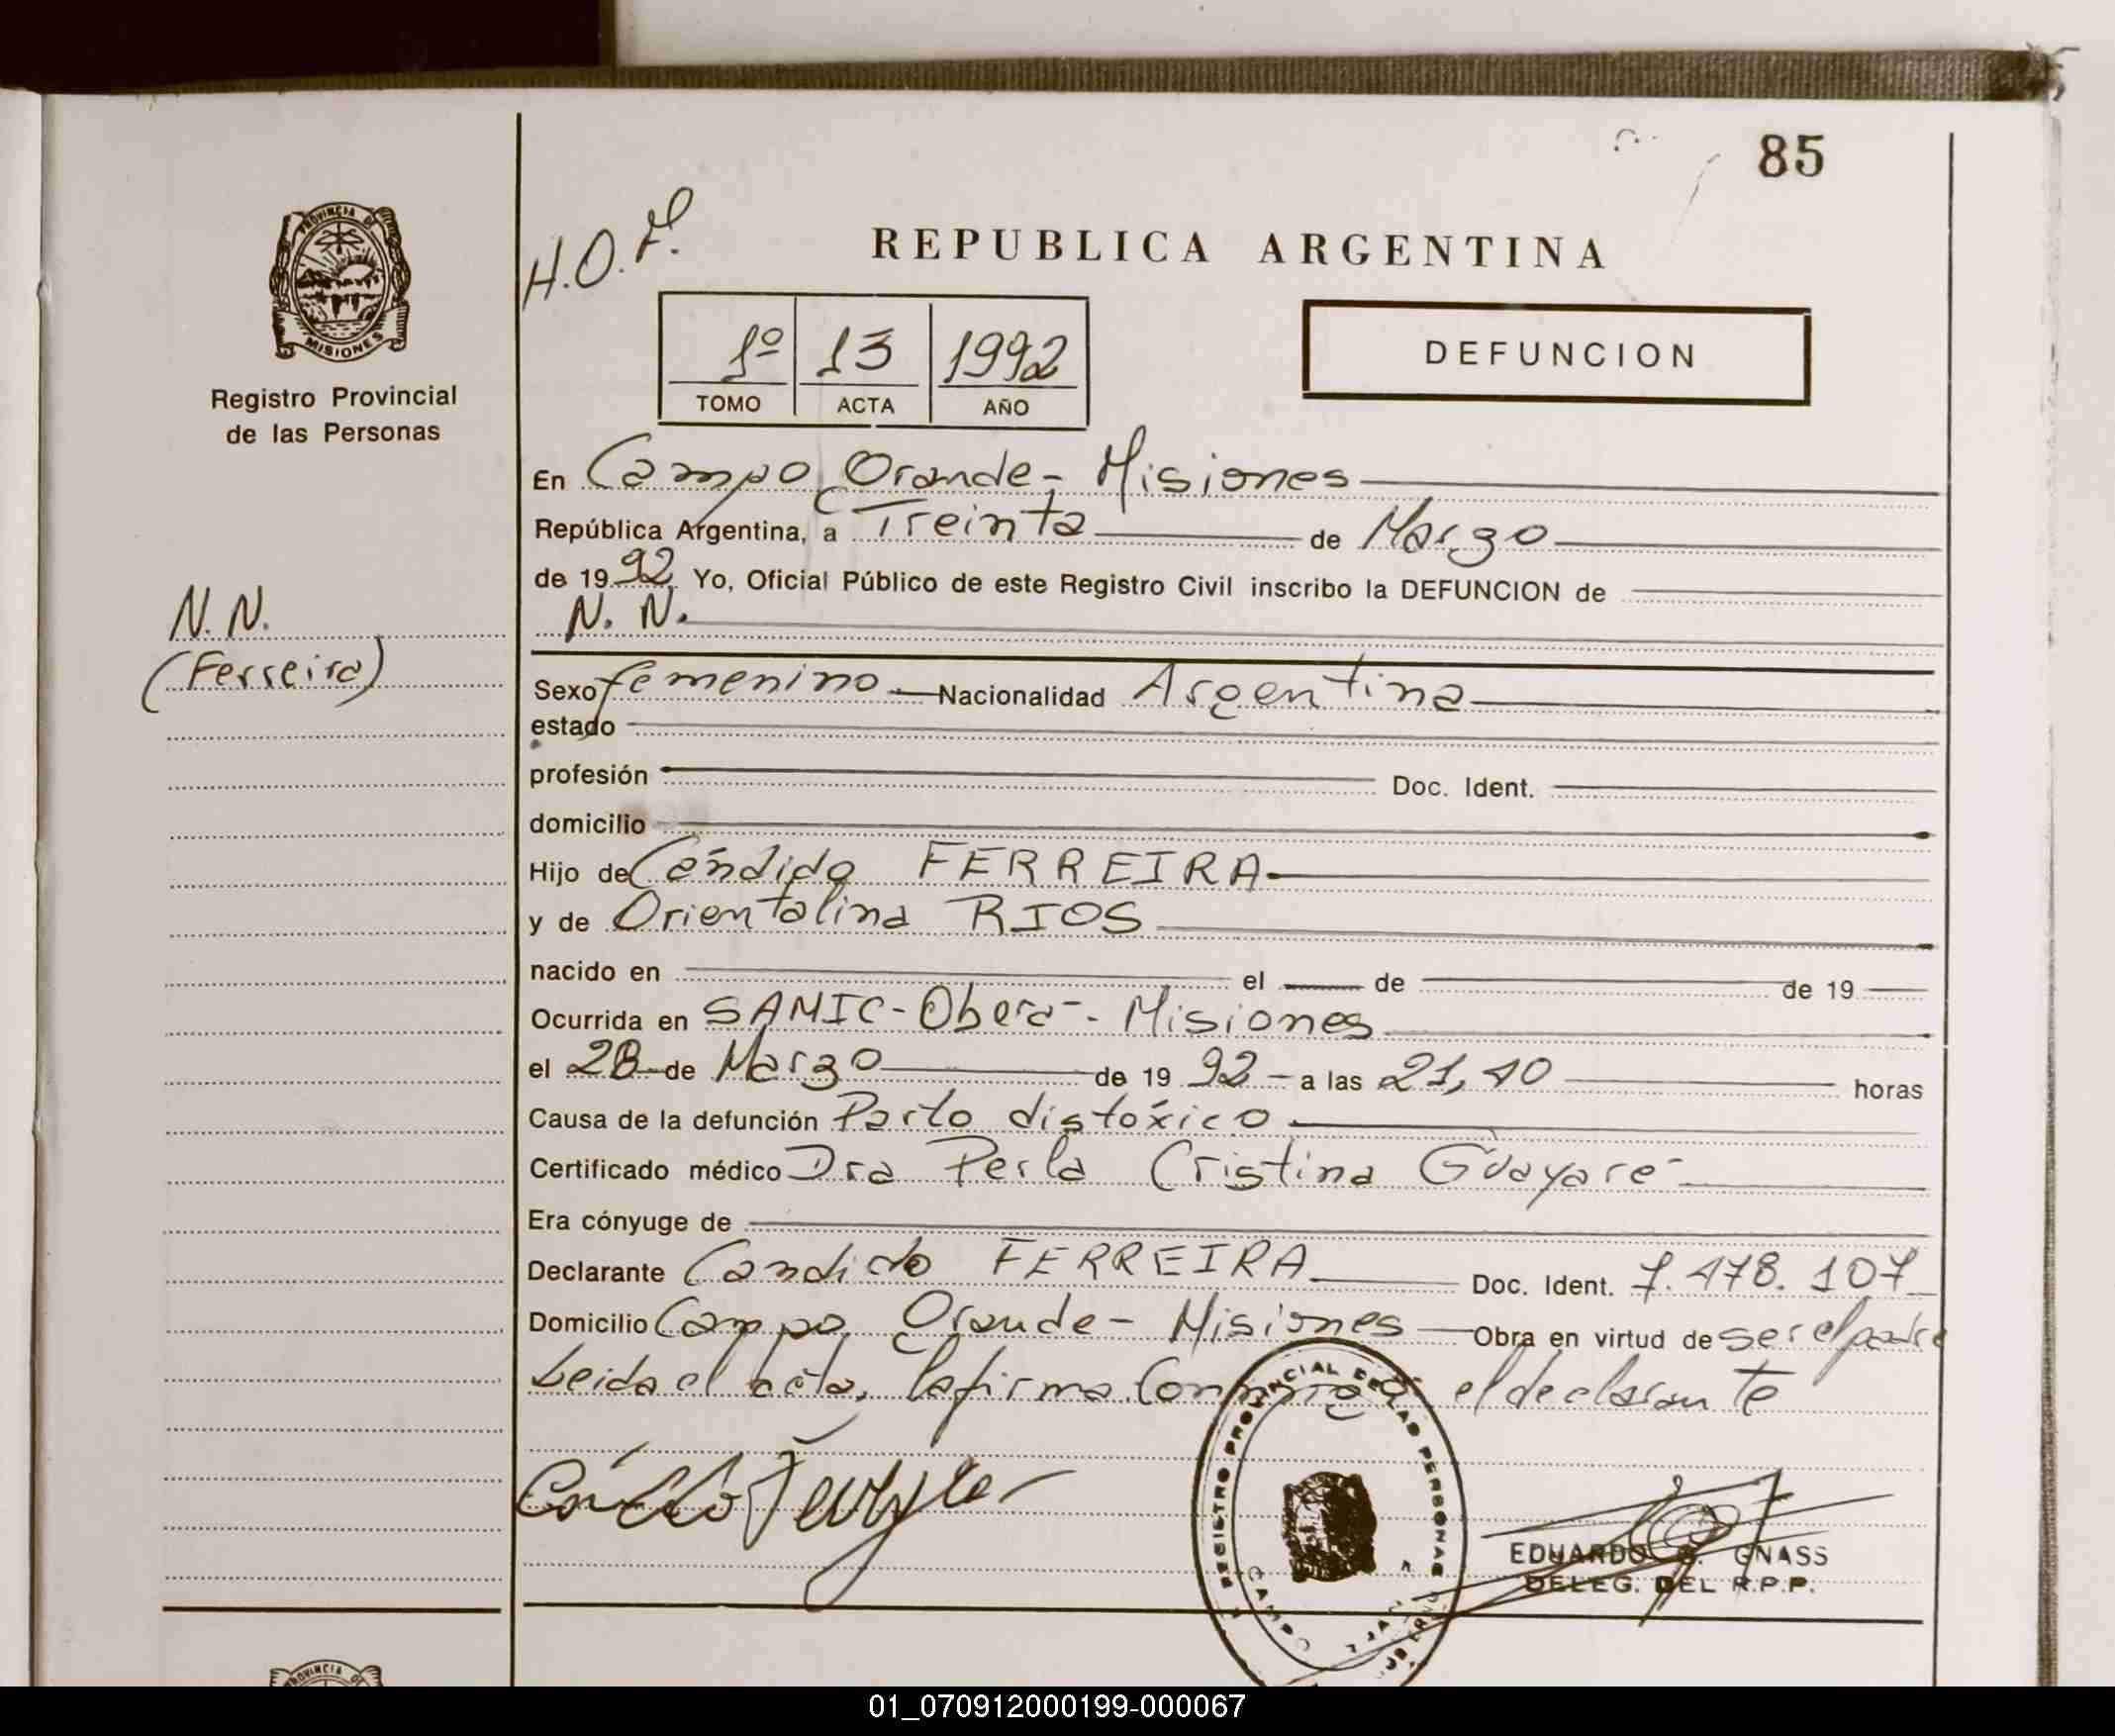 85
PROVINCIA DE
MISIONES
Registro Provincial
de las Personas
N.N.
(Ferreira)
REPUBLICA ARGENTINA
1º 13 1992
TOMO ACTA AÑO
DEFUNCION
En Campo Grande - Misiones
República Argentina, a Treinta de Marzo
de 1992 Yo, Oficial Público de este Registro Civil inscribo la DEFUNCION de
N. N.
Sexo femenino Nacionalidad Argentina
estado
profesión Doc. Ident.
domicilio
Hijo de Cándido FERREIRA
y de Orientalina RIOS
nacido en el de de 19
Ocurrida en SAMIC - Oberá - Misiones
el 28 de Marzo de 1992 a las 21,40 horas
Causa de la defunción Parto distóxico
Certificado médico Dra Perla Cristina Guayaré
Era cónyuge de
Declarante Candido FERREIRA Doc. Ident. 7.478.107
Domicilio Campo Grande - Misiones Obra en virtud de ser el padre
Leida el acta, la firma conmigo el declarante
REGISTRO PROVINCIAL DE LAS PERSONAS
CAMPO
EDUARDO GNASS
DELEG. DEL R.P.P.
PROVINCIA DE
01_070912000199-000067